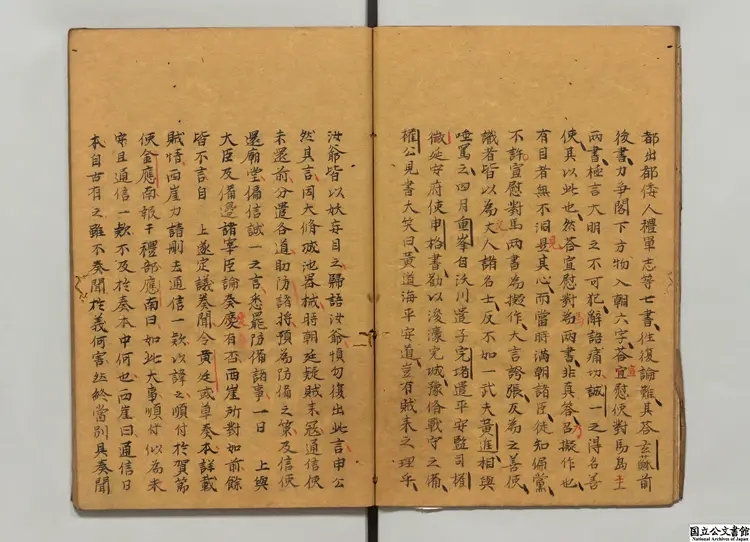 都出都倭人禮單志等七書往復論難具荅玄蘇前
後書力爭閣下方物入朝六字荅宣慰使對馬島主
兩書極言大明之不可犯解語痛切誠一之得名善
使其以此也然荅宣慰對馬兩書非真荅乃擬作也
有目者無不洞見其心而當時滿朝諸臣徒知偏黨
不許宣慰對馬兩書為擬作大言誇張反為之善使
識者皆以為文人諸名士反不如一武夫黃進相與
唾罵之四月重峯自沃川遣子完堵遣平安監司權
徵延安府使申恪書勸以浚濠完城豫脩戰守之備
權公見書大笑曰黃道海平安道豈有賊来之理乎
汝爺皆以妖妄目之歸語汝爺慎勿復出此言申公
然其言因大脩城池器械時朝廷疑賊来寇通信使
未還前分遣各道助防諸將預為防備之策及信使
還廟堂偏信誠一之言悉罷防備諸事一日　上與
大臣及備邊諸宰臣論奏麼有否西崖所對如前餘
皆不言自　上遂定議奏聞令黃廷或草奏本詳載
賊情西崖力諸削去通信一款以諱之順付於賀節
使金應南報于禮部應南曰如此大事順付似為未
安且通信一款不及於奏本中何也西崖曰通信日
本自古有之雖不奏聞於義何害然終當別具奏聞
国立公文書館
National Archives of Japan